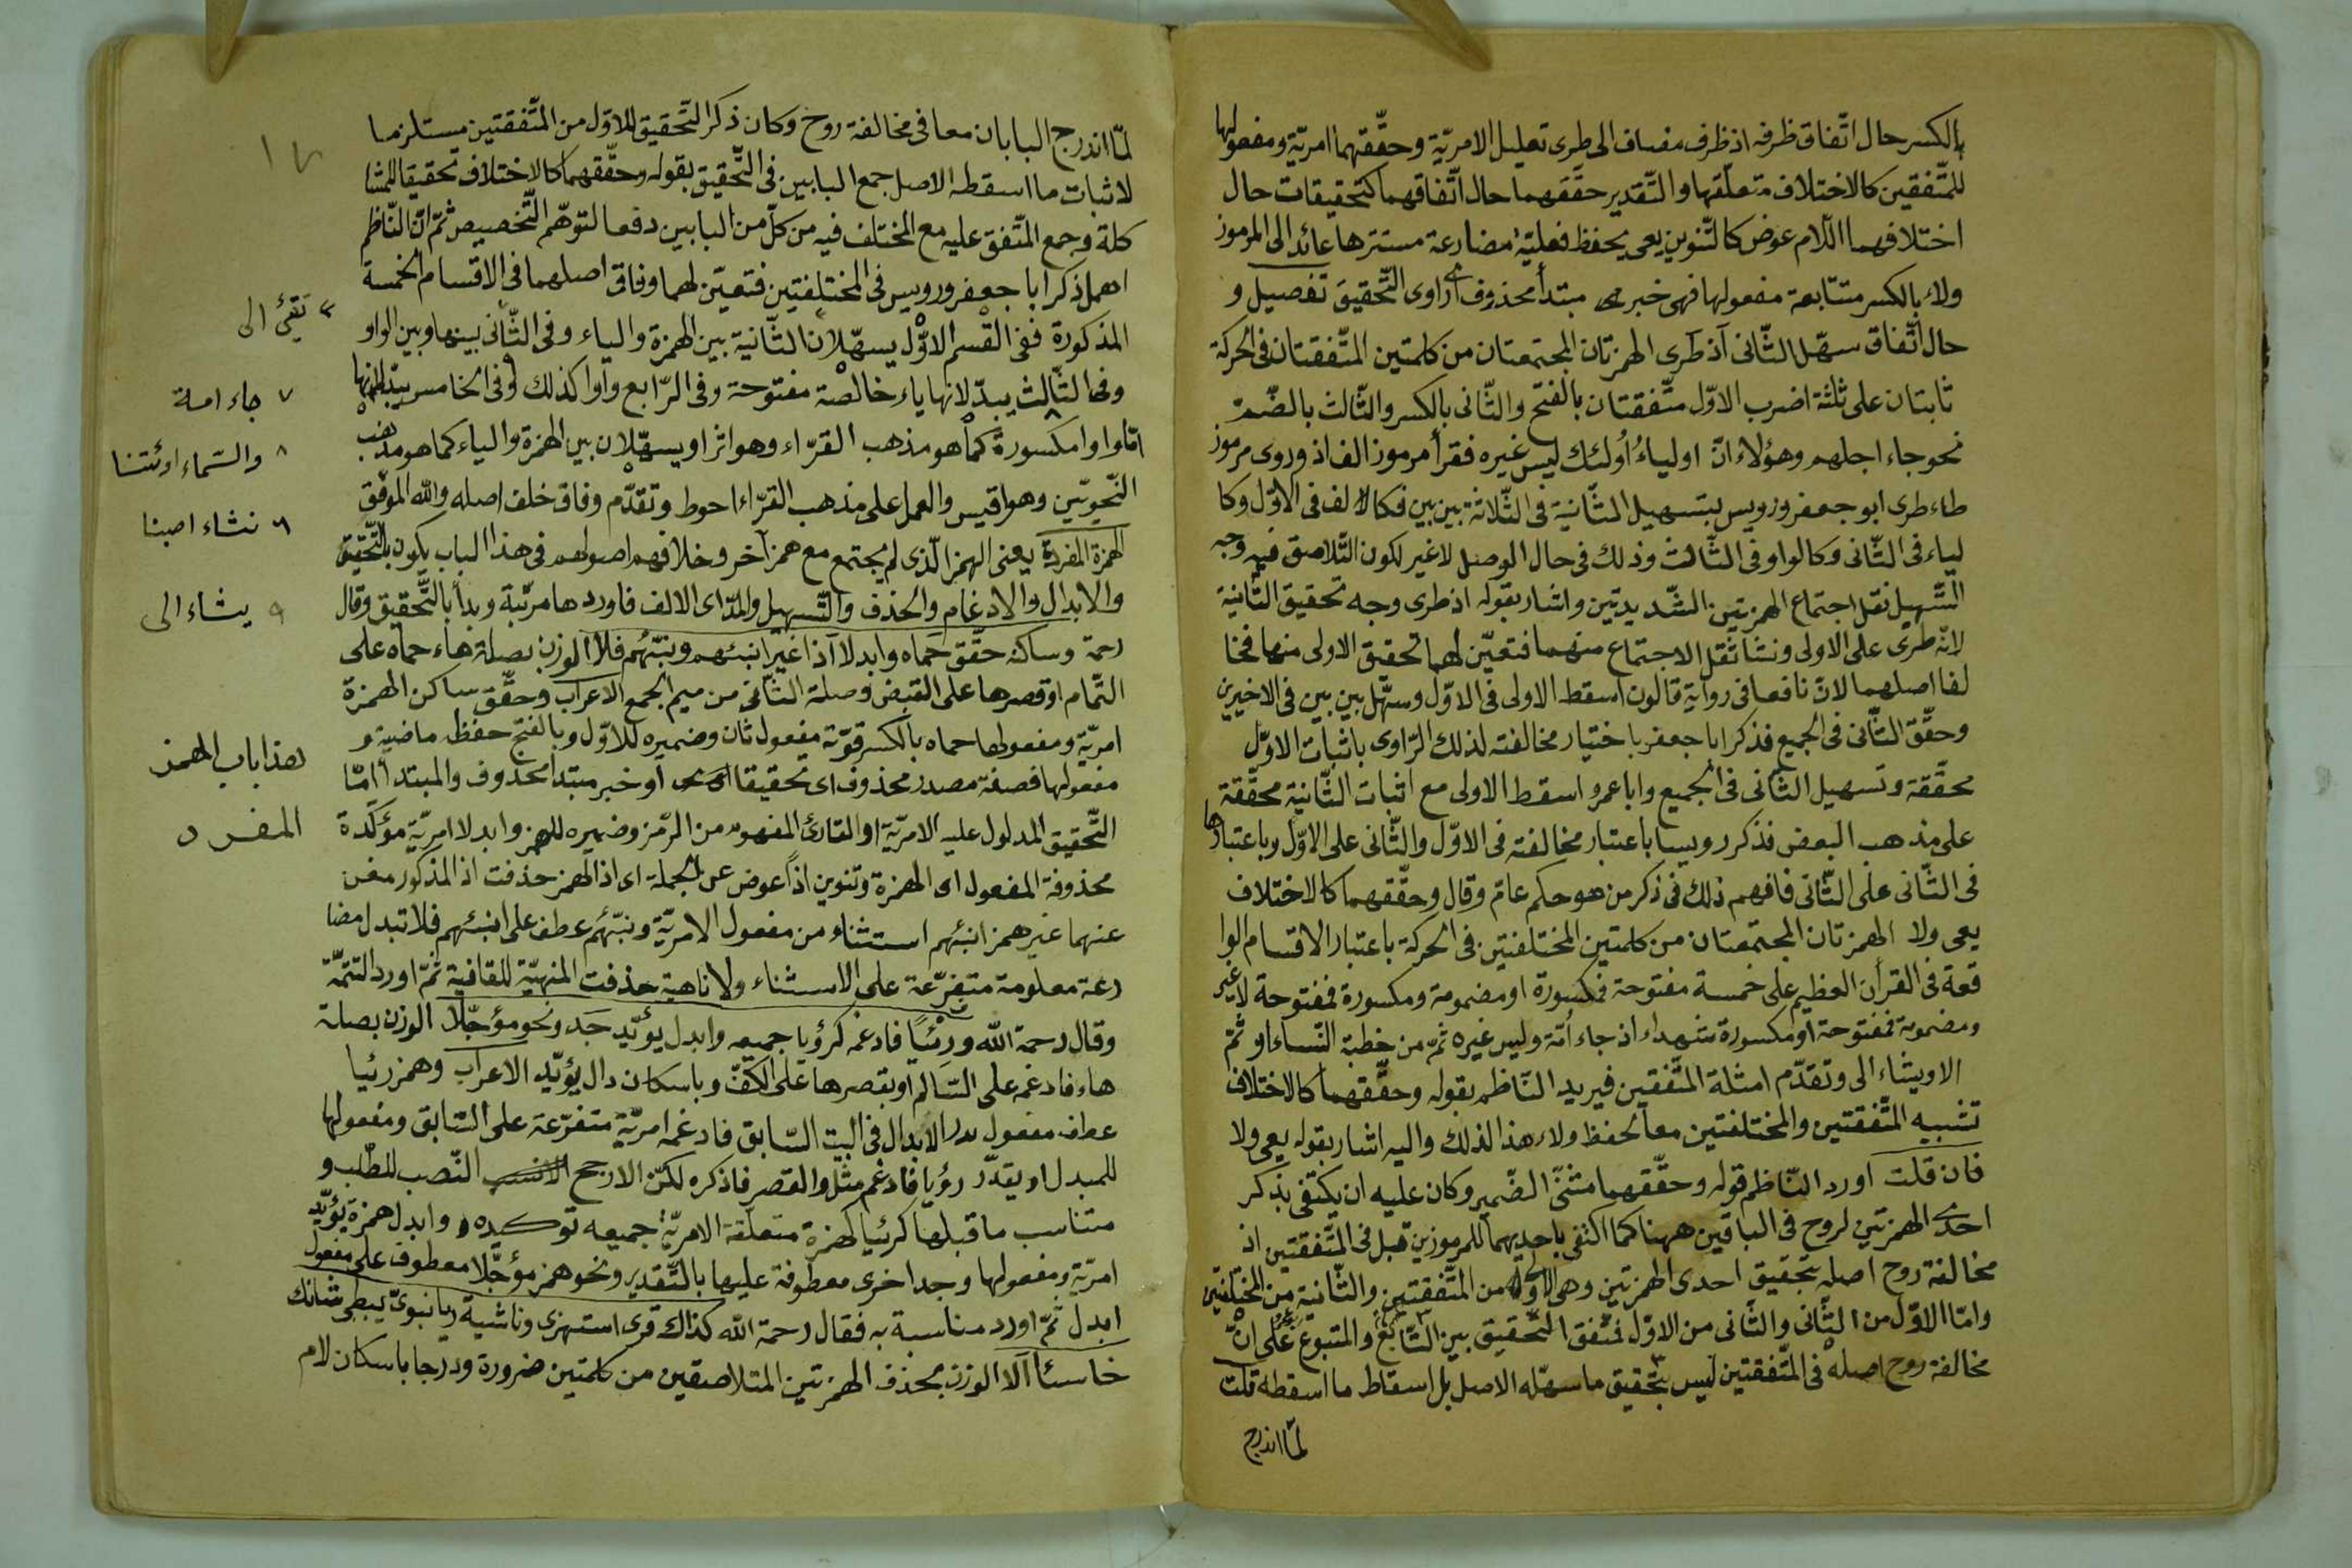 بالكسر حال اتّفاق ظرفه اذ ظرف مضاف الى طرى تعليل الامريّة وحقّقهما امريّة ومفعولها
للمتّفقين كالاختلاف متعلّقها والتّقدير حقّقهما حال اتّفاقهما كتحقيقات حال
اختلافهما اللّام عوض كالتّنوين يعى يحفظ فعليّة مضارعة مستترها عائد الى المرموز
ولاء بالكسر متتابعة مفعولها فهى خبر مبتدأ محذوف اى راوى التّحقيق تفصيل و
حال اتّفاق سهّل الثّانى اذ طرى الهمزتان المجتمعتان من كلمتين المتّفقتان فى الحركة
ثابتان على ثلثة اضرب الاوّل متّفقتان بالفتح والثّانى بالكسر والثّالث بالضّمّ
نحو جاء اجلهم وهؤلاء انّ اولياءُ اُولئك ليس غيره فقرأ مرموز الف اذ وروى مرموز
طاء طرى ابو جعفر ورويس بتسهيل الثّانية فى الثّلاثة بين بين فكالالف فى الاوّل وكا
لياء فى الثّانى وكالواو فى الثّالث وذلك فى حال الوصل لاغير لكون التّلاصق فيه وجه
التّسهيل نقل اجتماع الهمزتين الشّديدتين واشار بقوله اذ طرى وجه تحقيق الثّانية
لانّه طرى على الاولى ونشأ ثقل الاجتماع منهما فتعيّن لهما تحقيق الاولى منها فخا
لفا اصلهما لانّ نافعا فى رواية قالون اسقط الاولى فى الاوّل وسهّل بين بين فى الاخيرين
وحقّق الثّانى فى الجميع فذكر ابا جعفر باختيار مخالفته لذلك الرّاوى باثبات الاوّل
محقّقة وتسهيل الثّانى فى الجميع وابا عمرو اسقط الاولى مع اثبات الثّانية محقّقة
على مذهب البعض فذكر رويسا باعتبار مخالفته فى الاوّل والثّانى على الاوّل وباعتبارها
فى الثّانى على الثّانى فافهم ذلك فى ذكر من هو حكم عامّ وقال وحقّقهما كالاختلاف
يعى ولا الهمزتان المجتمعتان من كلمتين المختلفتين فى الحركة باعتبار الاقسام الوا
قعة فى القرآن العظيم على خمسة مفتوحة فمكسورة او مضمومة ومكسورة فمفتوحة لاغير
ومضمومة فمفتوحة او مكسورة شهداء اذ جاء اُمّة وليس غيره ثمّ من خطبة النّساء او ثمّ
الا ويشاء الى وتقدّم امثلة المتّفقين فيريد النّاظم بقوله وحقّقهما كالاختلاف
تشبيه المتّفقتين والمختلفتين معا لحفظ ولاء هذا لذلك واليه اشار بقوله يعى ولا
فان قلت اورد النّاظم قوله وحقّقهما مثنّى الضّمير وكان عليه ان يكتفى بذكر
احدى الهمزتين لروح فى الباقين ههنا كما اكتفى باحديهما للمرموزين قبل فى المتّفقتين اذ
مخالفة روح اصله بتحقيق احدى الهمزتين وهى الاولى من المتّفقتين والثّانية من المختلفتين
وامّا الاوّل من الثّانى والثّانى من الاوّل فمتّفق التّحقيق بين التّابع والمتبوع على انّ
مخالفة روح اصله فى المتّفقتين ليس بتحقيق ما سهّله الاصل بل اسقاط ما اسقطه قلت
لمّا اندرج
١٧
لمّا اندرج البابان معا فى مخالفة روح وكان ذكر التّحقيق للاوّل من المتّفقتين مستلزما
لاثبات ما اسقطه الاصل جمع البابين فى التّحقيق بقوله وحقّقهما كالاختلاف تحقيقا للمشا
كلة وجمع المتّفق عليه مع المختلف فيه من كلّ من البابين دفعا لتوهّم التّخصيص ثمّ انّ النّاظم
اهمل ذكر ابا جعفر ورويس فى المختلفتين فتعيّن لهما وفاق اصلهما فى الاقسام الخمسة
المذكورة ففى القسم الاوّل يسهّلان الثّانية بين الهمزة والياء وفى الثّانى بينها وبين الواو
وفى الثّالث يبدّلانها ياء خالصة مفتوحة وفى الرّابع واوا كذلك وفى الخامس يبدّلانها
امّا واوا مكسورة كما هو مذهب القرّاء وهو اثر او يسهّلان بين الهمزة والياء كما هو مذهب
النّحويّين وهو اقيس والعمل على مذهب القرّاء احوط وتقدّم وفاق خلف اصله والله الموفّق
الهمزة المفردة يعنى الهمز الّذى لم يجتمع مع همز آخر وخلافهم اصولهم فى هذا الباب يكون بالتّحقيق
والابدال والادغام والحذف والتّسهيل والمدّ اى الالف فاوردها مرتّبة وبدأ بالتّحقيق وقال
رحمة وساكنه حقّق حماه وابدلا اذا غير انبئهم ونبّئهم فلا الوزن بصلة هاء حماه على
التّمام او قصرها على القبض وصلة الثّانى من ميم الجمع الاعراب وحقّق ساكن الهمزة
امريّة ومفعولها حماه بالكسر قوّته مفعول ثان وضميره للاوّل وبالفتح حفظه ماضية و
مفعولها فصفة مصدر محذوف اى تحقيقا او خبر مبتدأ محذوف والمبتدأ امّا
التّحقيق المدلول عليه الامريّة او القارئ المفهوم من الرّمز وضميره للهمز وابدلا امريّة مؤكّدة
محذوفة المفعول اى الهمزة وتنوين اذاً عوض عن الجملة اى اذ الهمز حذفت اذ المذكور مغن
عنهما غير همز انبئهم استثناء من مفعول الامريّة ونبّئهم عطف على انبئهم فلا تبدل مضا
رعة معلومة متفرّعة على الاستثناء ولا ناهية حذفت المنهيّة للقافية ثمّ اورد التتمّة
وقال رحمة الله ورئيًا فادغمه كرؤيا جميعه وابدل يؤيّد جَد ونحو مؤجّلا الوزن بصلة
هاء فادغمه على السّالم او بقصرها على الكفّ وباسكان دال يؤيّد الاعراب وهمز رئيا
عطف مفعول الابدال فى البيت السّابق فادغمه امريّة متفرّعة على السّابق ومفعولها
للمبدل او يقدّر رؤيا فادغم مثل والقصر فاذكره لكنّ الارجح النّصب للمطلب و
متناسب ما قبلها كرئيا لهمزة متعلّقة الامريّة جميعه توكيده وابدل همزة يؤيّد
امريّة ومفعولها وجد اخرى معطوفة عليها بالتّقدير ونحو همز مؤجّلا معطوف على مفعول
ابدل ثمّ اورد مناسبة به فقال رحمة الله كذاك قرى استهزى وناشية ريا نبوىّ يبطى شانئك
خاسئا الا الوزن بحذف الهمزتين المتلاصقين من كلمتين ضرورة ودرجا باسكان لام
٧ جاء امة
٨ والسّماء اوئتنا
٦ نشاء اصبنا
٩ يشاء الى
هذا باب الهمز
المفرد